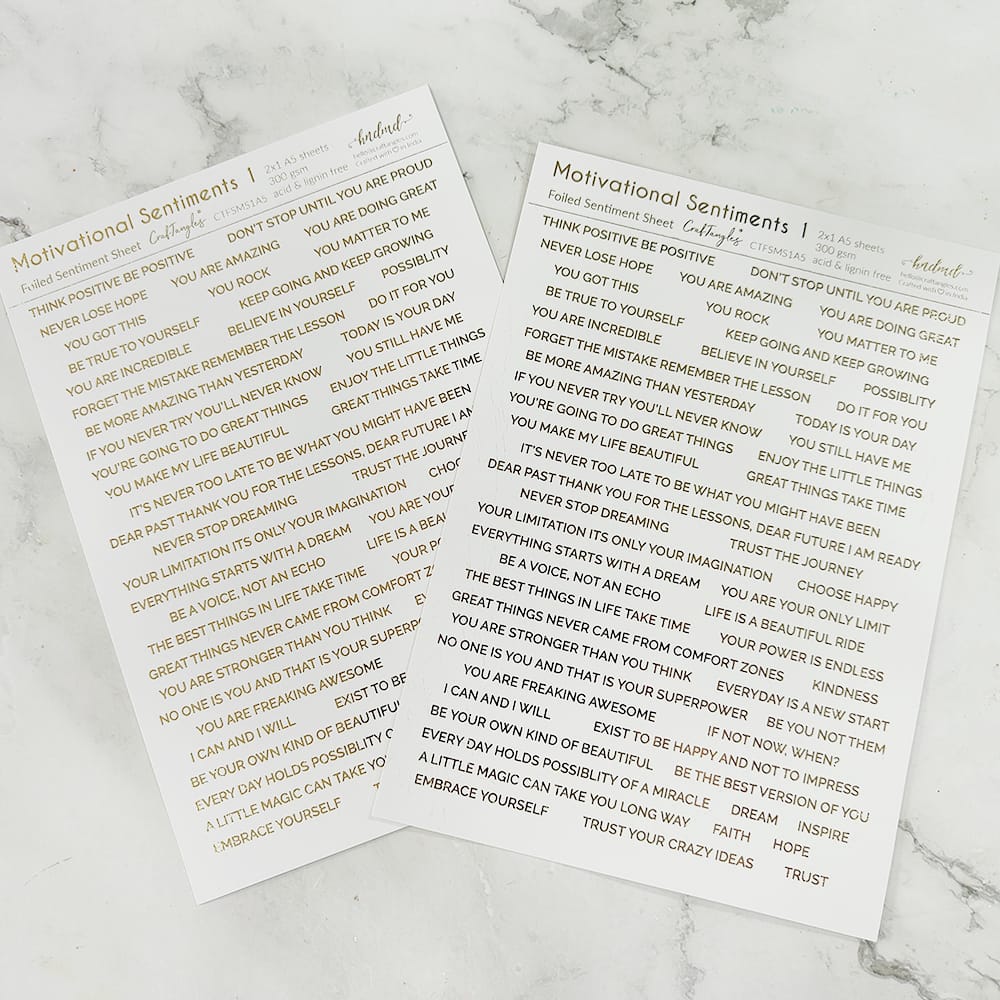 Motivational Sentiments | 2x1 A5 sheets
300 gsm
Foiled Sentiment Sheet CrafTangles CTFSMS1A5 acid & lignin free
hndmd
hello@craftangles.com
Crafted with ♡ in India
THINK POSITIVE BE POSITIVE DON'T STOP UNTIL YOU ARE PROUD
NEVER LOSE HOPE YOU ARE AMAZING YOU ARE DOING GREAT
YOU GOT THIS YOU ROCK YOU MATTER TO ME
BE TRUE TO YOURSELF KEEP GOING AND KEEP GROWING
YOU ARE INCREDIBLE BELIEVE IN YOURSELF POSSIBLITY
FORGET THE MISTAKE REMEMBER THE LESSON DO IT FOR YOU
BE MORE AMAZING THAN YESTERDAY TODAY IS YOUR DAY
IF YOU NEVER TRY YOU'LL NEVER KNOW YOU STILL HAVE ME
YOU'RE GOING TO DO GREAT THINGS ENJOY THE LITTLE THINGS
YOU MAKE MY LIFE BEAUTIFUL GREAT THINGS TAKE TIME
IT'S NEVER TOO LATE TO BE WHAT YOU MIGHT HAVE BEEN
DEAR PAST THANK YOU FOR THE LESSONS, DEAR FUTURE I AM
NEVER STOP DREAMING TRUST THE JOURNE
YOUR LIMITATION ITS ONLY YOUR IMAGINATION CHOO
EVERYTHING STARTS WITH A DREAM YOU ARE YOU
BE A VOICE, NOT AN ECHO LIFE IS A BEAU
THE BEST THINGS IN LIFE TAKE TIME YOUR PO
GREAT THINGS NEVER CAME FROM COMFORT ZO
YOU ARE STRONGER THAN YOU THINK
NO ONE IS YOU AND THAT IS YOUR SUPERPO
YOU ARE FREAKING AWESOME
I CAN AND I WILL EXIST TO BE
BE YOUR OWN KIND OF BEAUTIFUL
EVERY DAY HOLDS POSSIBLITY
A LITTLE MAGIC CAN TAKE YO
EMBRACE YOURSELF
Motivational Sentiments | 2x1 A5 sheets
300 gsm
Foiled Sentiment Sheet CrafTangles CTFSMS1A5 acid & lignin free
hndmd
hello@craftangles.com
Crafted with ♡ in India
THINK POSITIVE BE POSITIVE DON'T STOP UNTIL YOU ARE PROUD
NEVER LOSE HOPE YOU ARE AMAZING YOU ARE DOING GREAT
YOU GOT THIS YOU ROCK YOU MATTER TO ME
BE TRUE TO YOURSELF KEEP GOING AND KEEP GROWING
YOU ARE INCREDIBLE BELIEVE IN YOURSELF POSSIBLITY
FORGET THE MISTAKE REMEMBER THE LESSON DO IT FOR YOU
BE MORE AMAZING THAN YESTERDAY TODAY IS YOUR DAY
IF YOU NEVER TRY YOU'LL NEVER KNOW YOU STILL HAVE ME
YOU'RE GOING TO DO GREAT THINGS ENJOY THE LITTLE THINGS
YOU MAKE MY LIFE BEAUTIFUL GREAT THINGS TAKE TIME
IT'S NEVER TOO LATE TO BE WHAT YOU MIGHT HAVE BEEN
DEAR PAST THANK YOU FOR THE LESSONS, DEAR FUTURE I AM READY
NEVER STOP DREAMING TRUST THE JOURNEY
YOUR LIMITATION ITS ONLY YOUR IMAGINATION CHOOSE HAPPY
EVERYTHING STARTS WITH A DREAM YOU ARE YOUR ONLY LIMIT
BE A VOICE, NOT AN ECHO LIFE IS A BEAUTIFUL RIDE
THE BEST THINGS IN LIFE TAKE TIME YOUR POWER IS ENDLESS
GREAT THINGS NEVER CAME FROM COMFORT ZONES KINDNESS
YOU ARE STRONGER THAN YOU THINK EVERYDAY IS A NEW START
NO ONE IS YOU AND THAT IS YOUR SUPERPOWER BE YOU NOT THEM
YOU ARE FREAKING AWESOME IF NOT NOW, WHEN?
I CAN AND I WILL EXIST TO BE HAPPY AND NOT TO IMPRESS
BE YOUR OWN KIND OF BEAUTIFUL BE THE BEST VERSION OF YOU
EVERY DAY HOLDS POSSIBLITY OF A MIRACLE DREAM INSPIRE
A LITTLE MAGIC CAN TAKE YOU LONG WAY FAITH HOPE
EMBRACE YOURSELF TRUST YOUR CRAZY IDEAS TRUST